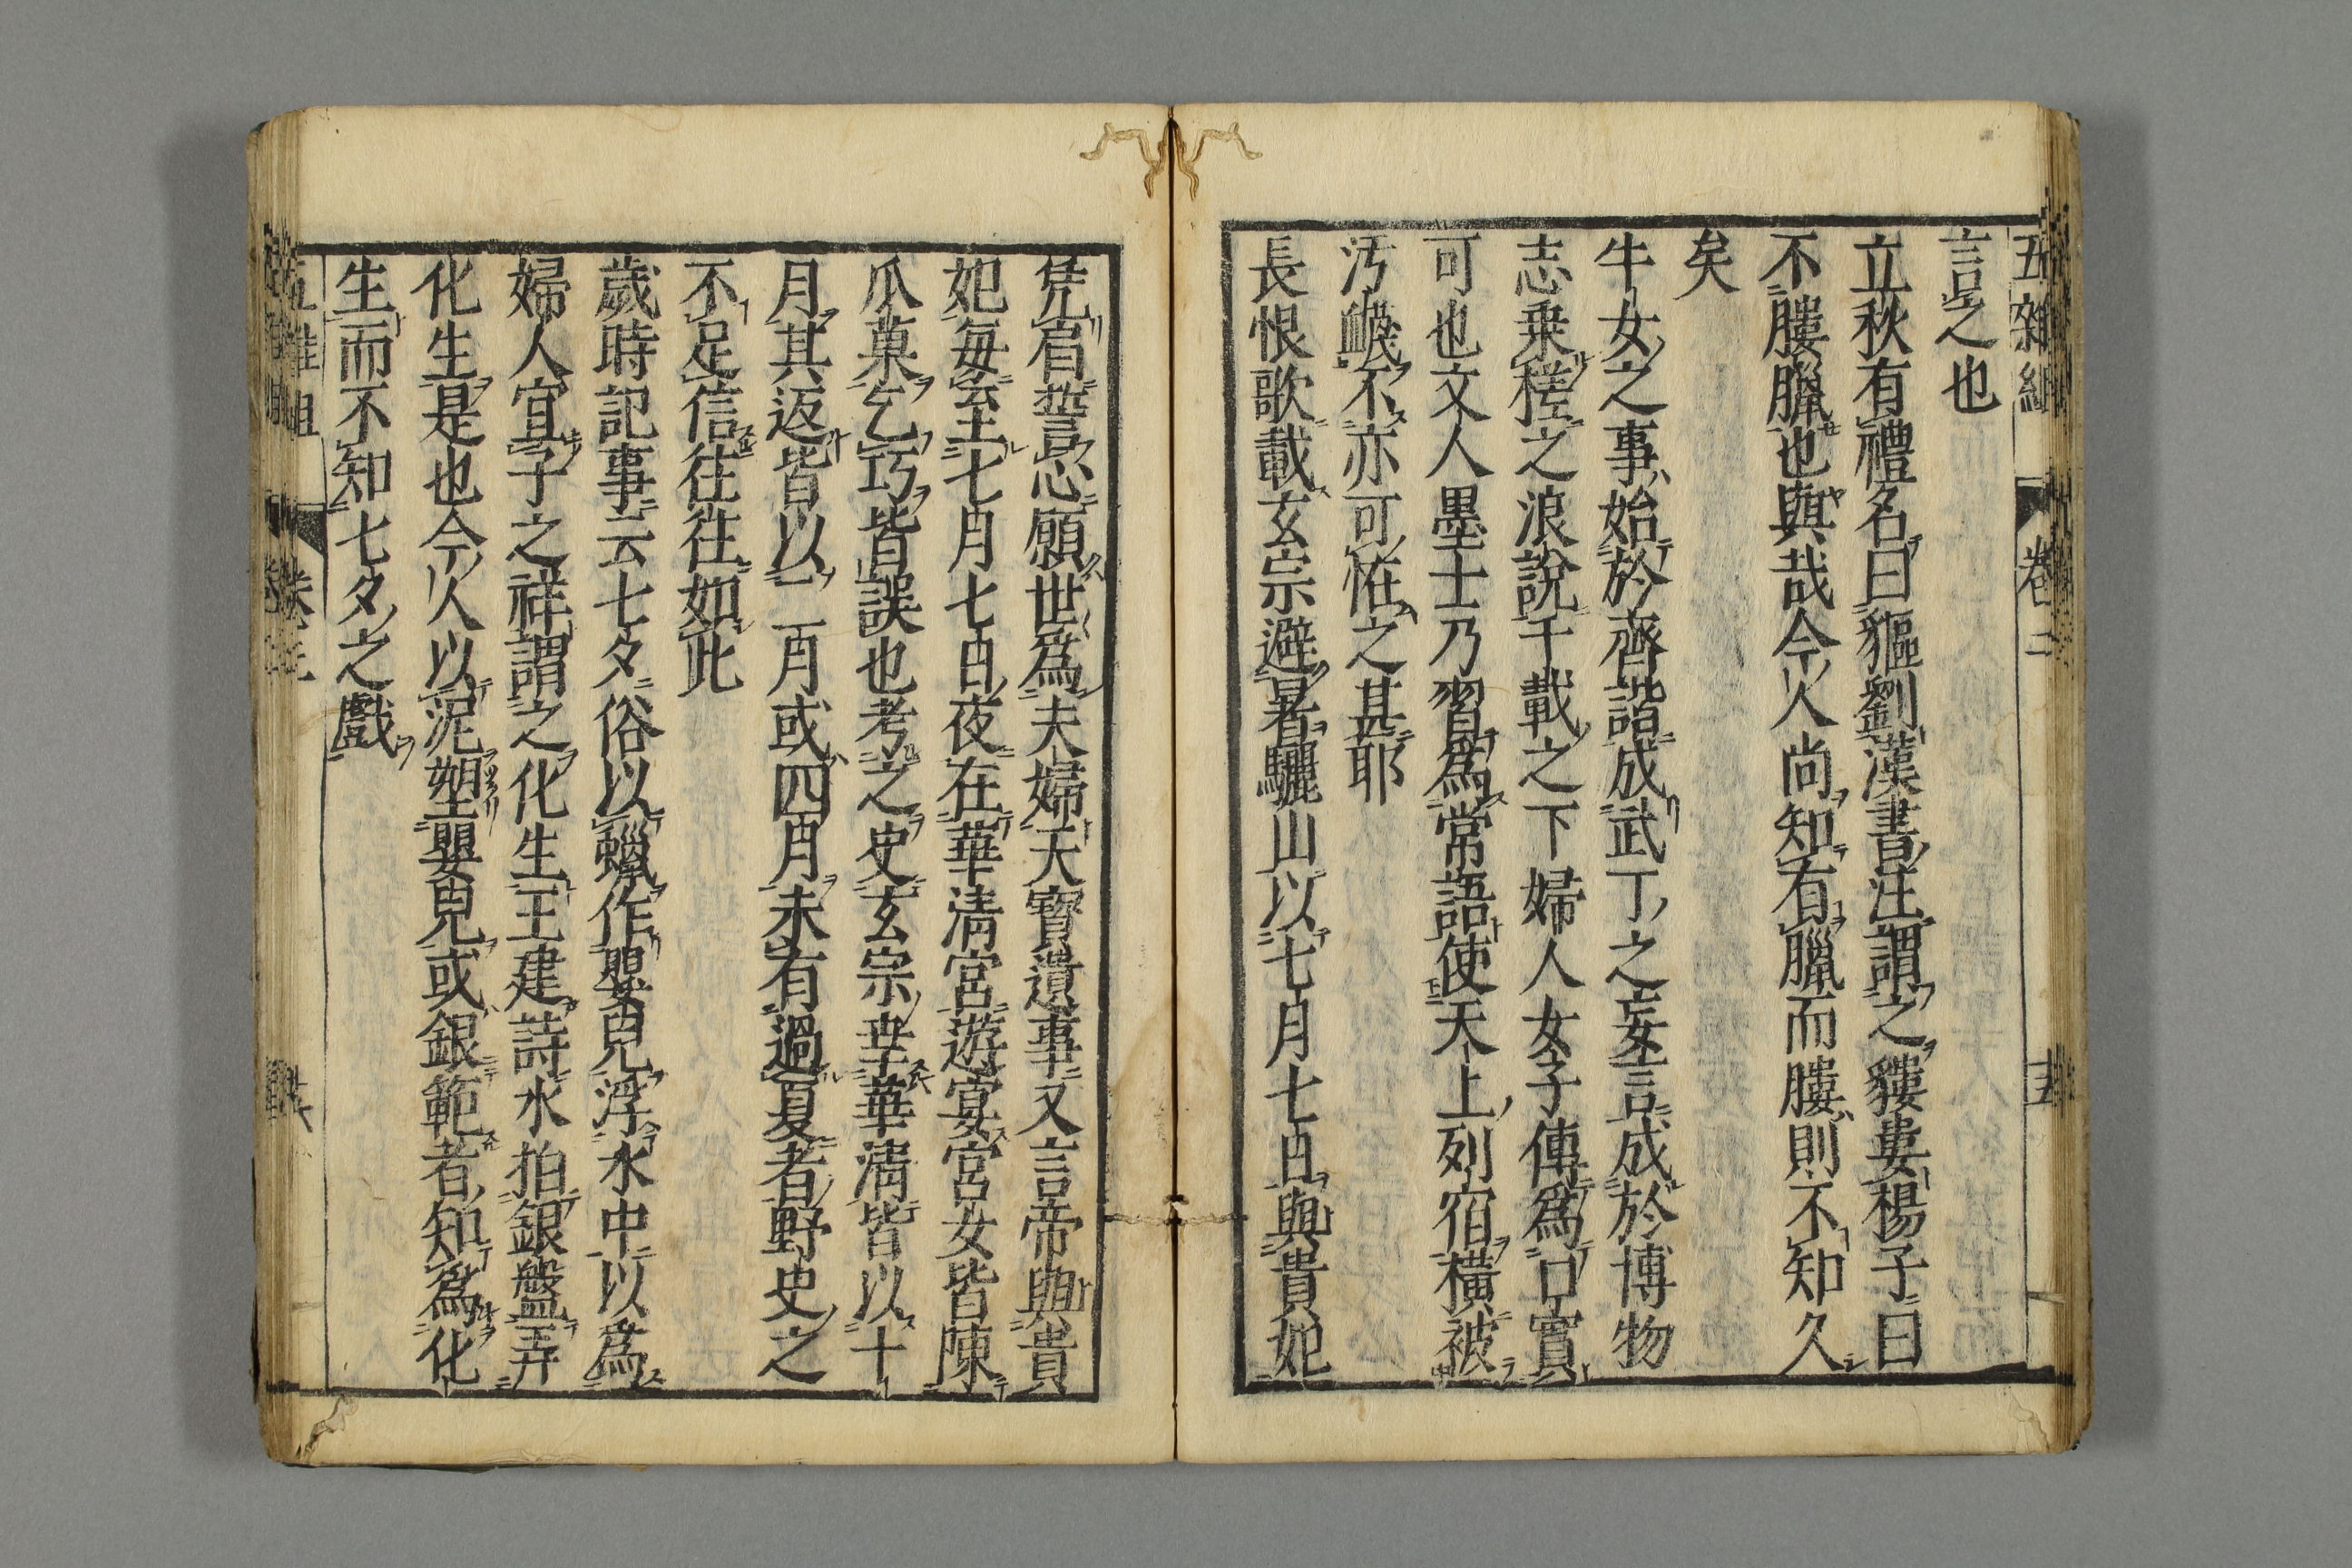 五雜組 卷二 十五
言之也
立秋有禮名曰貙劉漢書注謂之貗婁楊子曰
不膢臘也與哉今人尚知有臘而膢則不知久
矣
牛女之事始於齊諧成武丁之妄言成於博物
志乗槎之浪說千載之下婦人女子傳爲口實
可也文人墨士乃習爲常語使天上列宿橫被
汚衊不亦可恠之甚耶
長恨歌載玄宗避暑驪山以七月七日與貴妃
凭肩誓心願世爲夫婦天寳遺事又言帝與貴
妃每至七月七日夜在華清宮遊宴宮女皆陳
瓜菓乞巧皆誤也考之史玄宗幸華清皆以十
月其返皆以二月或四月未有過夏者野史之
不足信往往如此
歲時記事云七夕俗以蠟作嬰兒浮水中以爲
婦人宜子之祥謂之化生王建詩水拍銀盤弄
化生是也今人以泥塑嬰兒或銀範者知爲化
生而不知七夕之戲